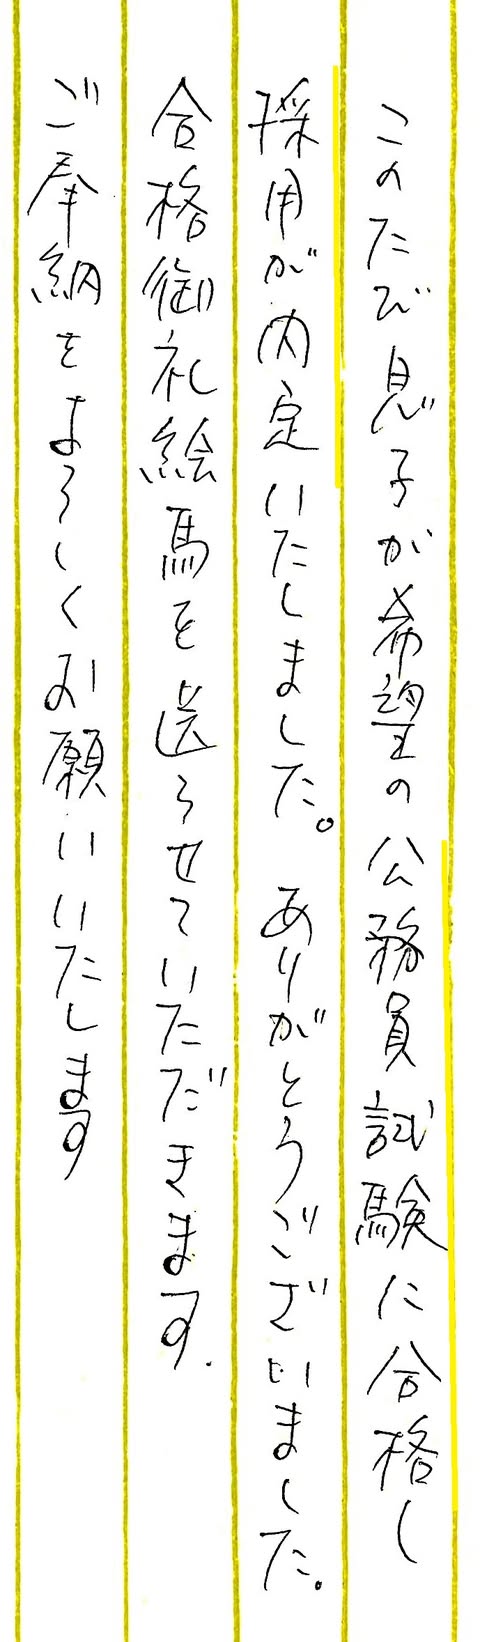 このたび息子が希望の公務員試験に合格し
採用が内定いたしました。ありがとうございました。
合格御礼絵馬を送らせていただきます.
ご奉納をよろしくお願いいたします